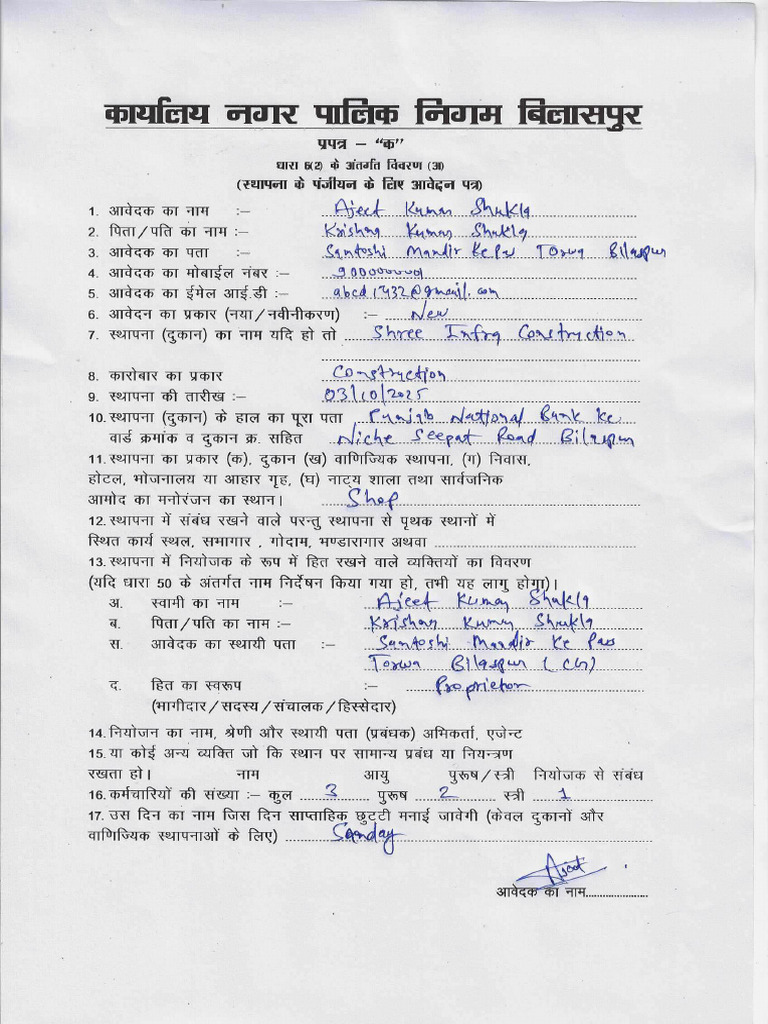 कार्यालय नगर पालिक निगम बिलासपुर
प्रपत्र – “क”
धारा 6(2) के अंतर्गत विवरण (अ)
(स्थापना के पंजीयन के लिए आवेदन पत्र)
1. आवेदक का नाम :– Ajeet Kumar Shukla
2. पिता/पति का नाम :– Krishna Kumar Shukla
3. आवेदक का पता :– Santoshi Mandir Ke Pas Torwa Bilaspur
4. आवेदक का मोबाईल नंबर :–
5. आवेदक का ईमेल आई.डी :– abcd1432@gmail.com
6. आवेदन का प्रकार (नया/नवीनीकरण) :– New
7. स्थापना (दुकान) का नाम यदि हो तो Shree Infra Construction
8. कारोबार का प्रकार Construction
9. स्थापना की तारीख :– 03/10/2025
10. स्थापना (दुकान) के हाल का पूरा पता Punjab National Bank Ke
वार्ड क्रमांक व दुकान क्र. सहित Niche Seepat Road Bilaspur
11. स्थापना का प्रकार (क), दुकान (ख) वाणिज्यिक स्थापना, (ग) निवास,
होटल, भोजनालय या आहार गृह, (घ) नाट्य शाला तथा सार्वजनिक
आमोद का मनोरंजन का स्थान। Shop
12. स्थापना में संबंध रखने वाले परन्तु स्थापना से पृथक स्थानों में
स्थित कार्य स्थल, समागार , गोदाम, भण्डारागार अथवा
13. स्थापना में नियोजक के रूप में हित रखने वाले व्यक्तियों का विवरण
(यदि धारा 50 के अंतर्गत नाम निर्देषन किया गया हो, तभी यह लागु होगा)।
अ. स्वामी का नाम :– Ajeet Kumar Shukla
ब. पिता/पति का नाम :– Krishna Kumar Shukla
स. आवेदक का स्थायी पता :– Santoshi Mandir Ke Pass
Torwa Bilaspur (CG)
द. हित का स्वरूप :– Proprietor
(भागीदार/सदस्य/संचालक/हिस्सेदार)
14. नियोजन का नाम, श्रेणी और स्थायी पता (प्रबंधक) अमिकर्ता, एजेन्ट
15. या कोई अन्य व्यक्ति जो कि स्थान पर सामान्य प्रबंध या नियन्त्रण
रखता हो। नाम आयु पुरूष/स्त्री नियोजक से संबंध
16. कर्मचारियों की संख्या :– कुल 3 पुरूष 2 स्त्री 1
17. उस दिन का नाम जिस दिन साप्ताहिक छुट्टी मनाई जावेगी (केवल दुकानों और
वाणिज्यिक स्थापनाओं के लिए) Sanday
Ajeet
आवेदक का नाम